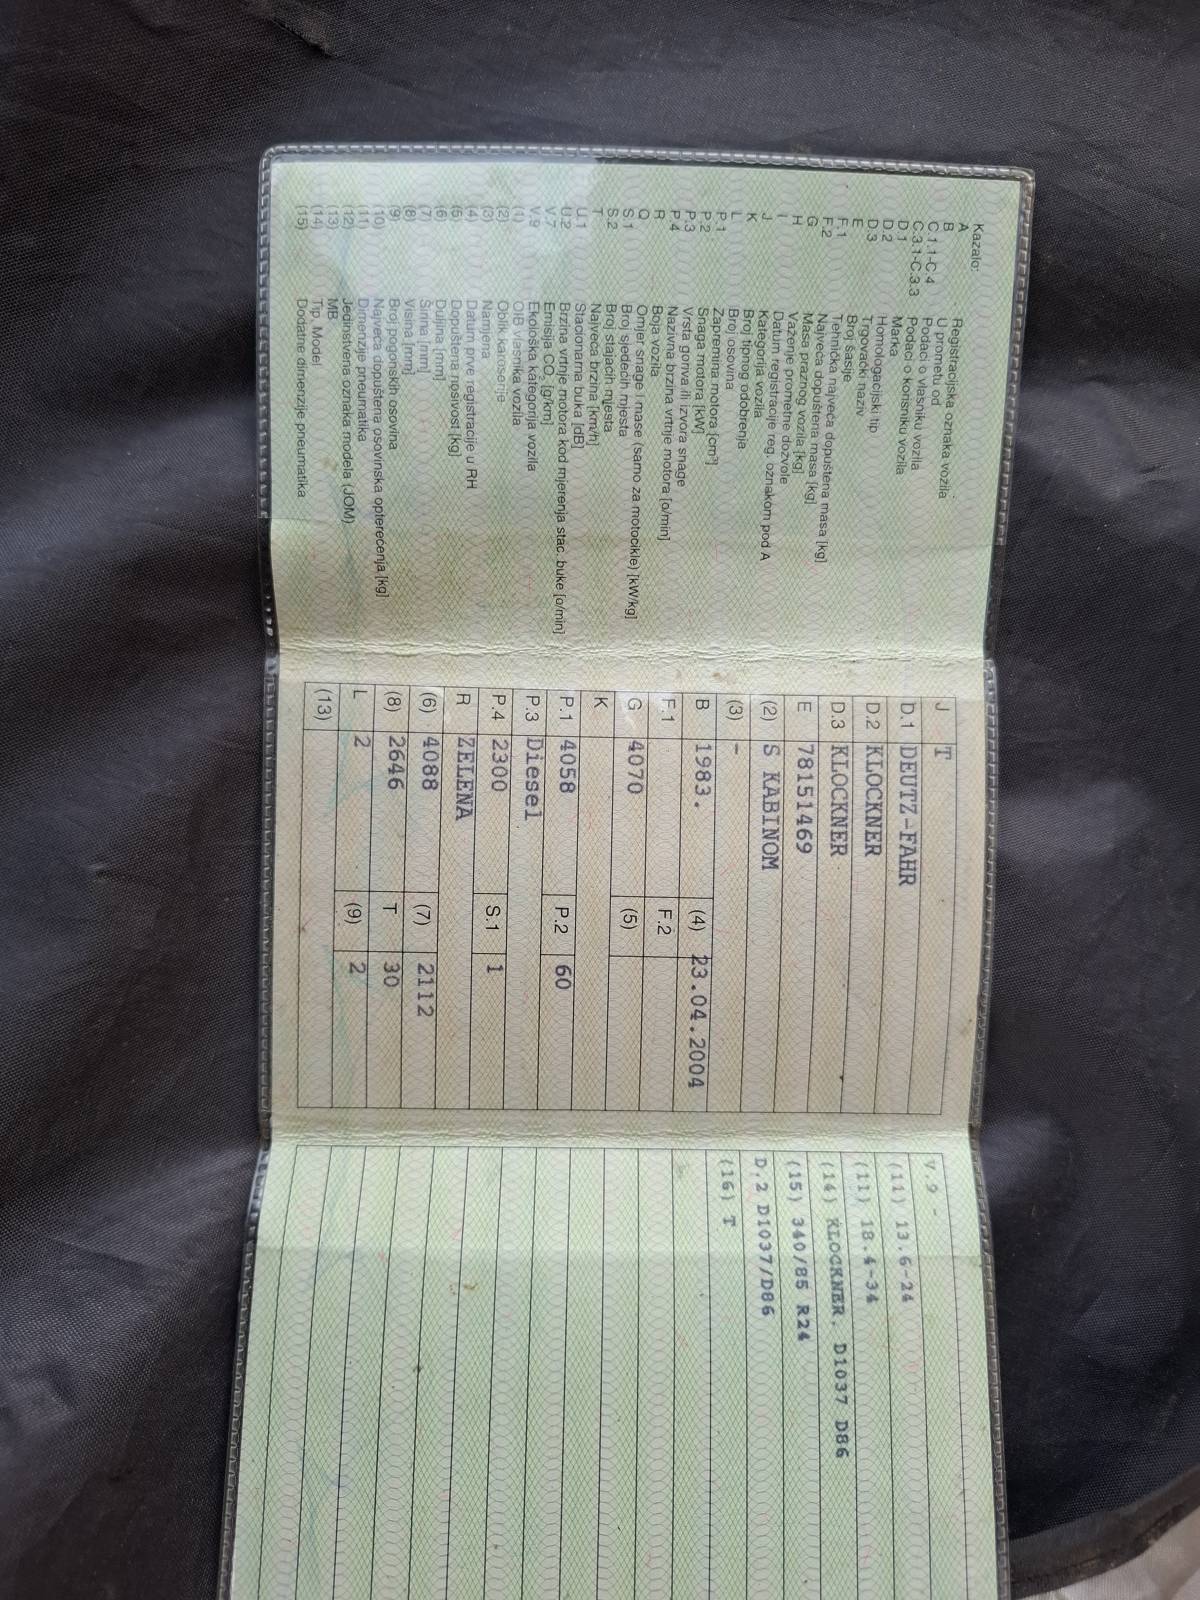 Kazalo:
A Registracijska oznaka vozila
B U prometu od
C.1.1-C.4 Podaci o vlasniku vozila
C.3.1-C.3.3 Podaci o korisniku vozila
D.1 Marka
D.2 Homologacijski tip
D.3 Trgovački naziv
E Broj šasije
F.1 Tehnička najveća dopuštena masa [kg]
F.2 Najveća dopuštena masa [kg]
G Masa praznog vozila [kg]
H Važenje prometne dozvole
I Datum registracije reg. oznakom pod A
J Kategorija vozila
K Broj tipnog odobrenja
L Broj osovina
P.1 Zapremina motora [cm³]
P.2 Snaga motora [kW]
P.3 Vrsta goriva ili izvora snage
P.4 Nazivna brzina vrtnje motora [o/min]
R Boja vozila
Q Omjer snage i mase (samo za motocikle) [kW/kg]
S.1 Broj sjedećih mjesta
S.2 Broj stajaćih mjesta
T Najveća brzina [km/h]
U.1 Stacionarna buka [dB]
U.2 Brzina vrtnje motora kod mjerenja stac. buke [o/min]
V.7 Emisija CO₂ [g/km]
V.9 Ekološka kategorija vozila
(1) OIB vlasnika vozila
(2) Oblik karoserije
(3) Namjena
(4) Datum prve registracije u RH
(5) Dopuštena nosivost [kg]
(6) Duljina [mm]
(7) Širina [mm]
(8) Visina [mm]
(9) Broj pogonskih osovina
(10) Najveća dopuštena osovinska opterećenja [kg]
(11) Dimenzije pneumatika
(12) Jedinstvena oznaka modela (JOM)
(13) MB
(14) Tip, Model
(15) Dodatne dimenzije pneumatika
J T
D.1 DEUTZ-FAHR
D.2 KLOCKNER
D.3 KLOCKNER
E 78151469
(2) S KABINOM
(3) -
B 1983. (4) 23.04.2004
F.1 F.2
G 4070 (5)
K
P.1 4058 P.2 60
P.3 Diesel
P.4 2300 S.1 1
R ZELENA
(6) 4088 (7) 2112
(8) 2646 T 30
L 2 (9) 2
(13)
V.9 -
(11) 13.6-24
(11) 18.4-34
(14) KLOCKNER. D1037 D86
(15) 340/85 R24
D.2 D1037/D86
(16) T